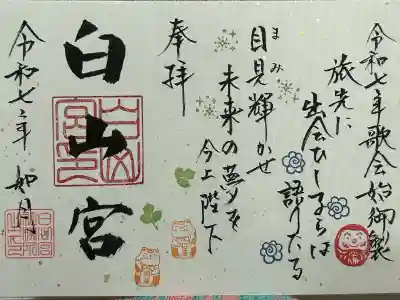 令和七年歌会始御製
旅先に
出会ひし子らは
語りたる
目見輝かせ
まみ
未来の夢を
今上陛下
奉拝
白山宮
令和七年 如月